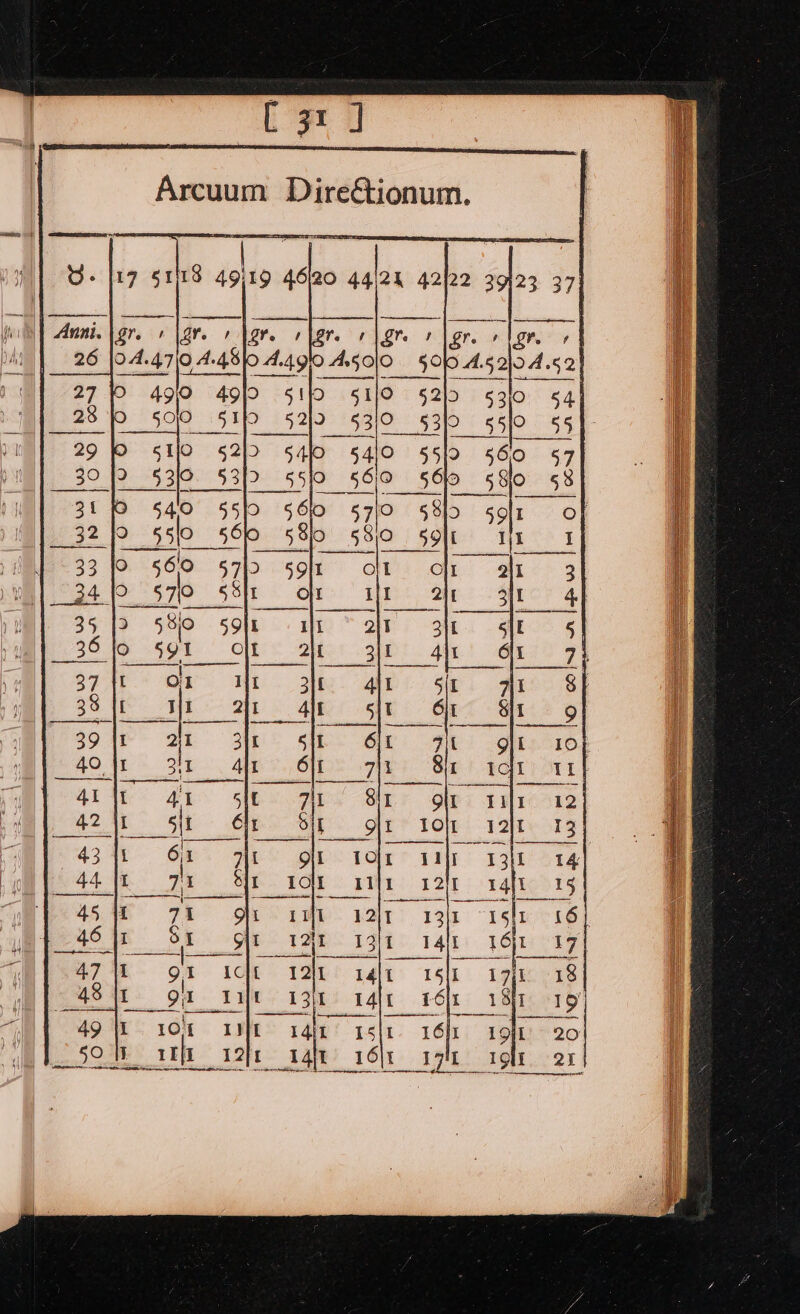 [ 31 ]
Arcuum Directionum.
♉. 17 51 18 49 19 46 20 44 21 42 22 39 23 37
Anni. gr. ′ gr. ′ gr. ′ gr. ′ gr. ′ gr. ′ gr. ′
26 0A.47 0A.48 0A.49 0A.50 0 50 0A.52 0A.52
27 0 49 0 49 0 51 0 51 0 52 0 53 0 54
28 0 50 0 51 0 52 0 53 0 53 0 55 0 55
29 0 51 0 52 0 54 0 54 0 55 0 56 0 57
30 0 53 0 53 0 55 0 56 0 56 0 58 0 58
31 0 54 0 55 0 56 0 57 0 58 0 59 1 0
32 0 55 0 56 0 58 0 58 0 59 1 1 1 1
33 0 56 0 57 0 59 1 0 1 0 1 2 1 3
34 0 57 0 58 1 0 1 1 1 2 1 3 1 4
35 0 58 0 59 1 1 1 2 1 3 1 5 1 5
36 0 59 1 0 1 2 1 3 1 4 1 6 1 7
37 1 0 1 1 1 3 1 4 1 5 1 7 1 8
38 1 1 1 2 1 4 1 5 1 6 1 8 1 9
39 1 2 1 3 1 5 1 6 1 7 1 9 1 10
40 1 3 1 4 1 6 1 7 1 8 1 10 1 11
41 1 4 1 5 1 7 1 8 1 9 1 11 1 12
42 1 5 1 6 1 8 1 9 1 10 1 12 1 13
43 1 6 1 7 1 9 1 10 1 11 1 13 1 14
44 1 7 1 8 1 10 1 11 1 12 1 14 1 15
45 1 7 1 9 1 11 1 12 1 13 1 15 1 16
46 1 8 1 9 1 12 1 13 1 14 1 16 1 17
47 1 9 1 10 1 12 1 14 1 15 1 17 1 18
48 1 9 1 11 1 13 1 14 1 16 1 18 1 19
49 1 10 1 11 1 14 1 15 1 16 1 19 1 20
50 1 11 1 12 1 14 1 16 1 17 1 19 1 21